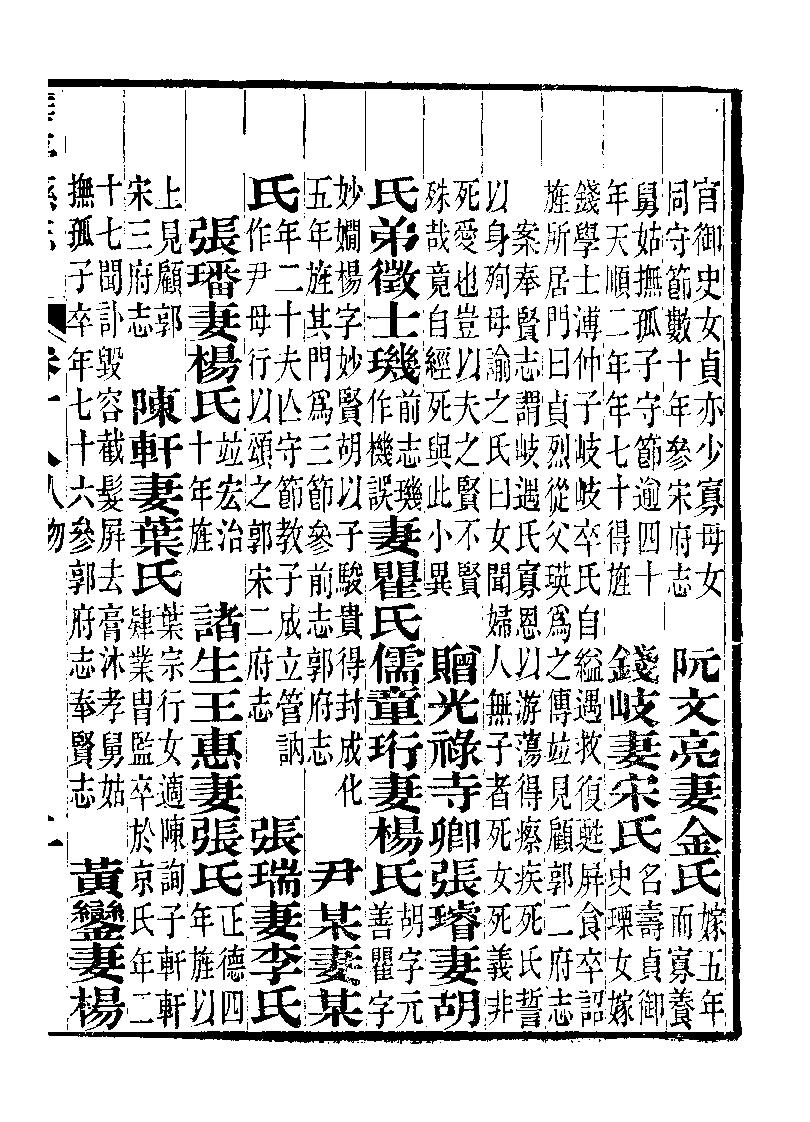 官御史女貞亦少寡母女
同守節數十年參宋府志
阮文亮妻金氏
嫁五年
而寡養
舅姑撫孤子守節逾四十
年天順二年年七十得旌
錢岐妻宋氏
名壽貞御
史瑮女嫁
錢學士溥仲子岐岐卒氏自縊遇救復甦屏食卒詔
旌所居門曰貞烈從父瑛爲之傳竝見顧郭二府志
案奉賢志謂岐遇氏寡恩以游蕩得瘵疾死氏誓
以身殉母諭之氏曰女聞婦人無子者死女死義非
死愛也豈以夫之賢不賢
殊哉竟自經死與此小異
贈光祿寺卿張璿妻胡
氏弟徵士璣
前志璣
作機誤
妻瞿氏儒童珩妻楊氏
胡字元
善瞿字
妙嫺楊字妙賢胡以子駿貴得封成化
五年旌其門爲三節參前志郭府志
尹某妻某
氏
年二十夫亾守節教子成立管訥
作尹母行以頌之郭宋二府志
張瑞妻李氏
張璠妻楊氏
竝宏治
十年旌
諸生王惠妻張氏
正德四
年旌以
上見顧郭
宋三府志
陳軒妻葉氏
葉宗行女適陳詢子軒軒
肄業胄監卒於京氏年二
十七聞訃毀容截髮屏去膏沐孝舅姑
撫孤子卒年七十六參郭府志奉賢志
黃鑾妻楊
卷十八人物